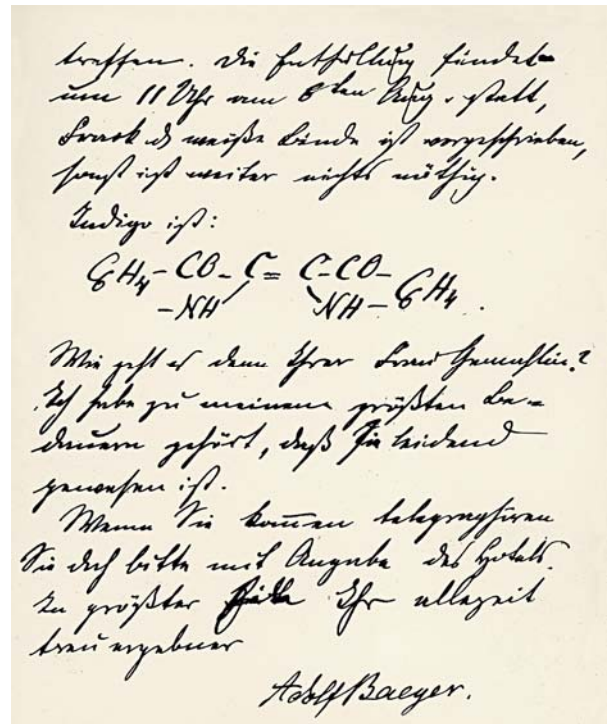 treffen. Die Enthüllung findet
um 11 Uhr am 8ten Aug. statt,
Frack & weiße Binde ist vorgeschrieben,
sonst ist weiter nichts nöthig.
Indigo ist:
C6H4 – CO – C = C – CO – C6H4 .
– NH NH –
Wie geht es denn Ihrer Frau Gemahlin?
Ich habe zu meinem größten Be-
dauern gehört, daß Sie leidend
gewesen ist.
Wenn Sie kommen telegraphiren
Sie doch bitte mit Angabe des Hotels.
In größter Ihr allezeit
treu ergebner
Adolf Baeyer.